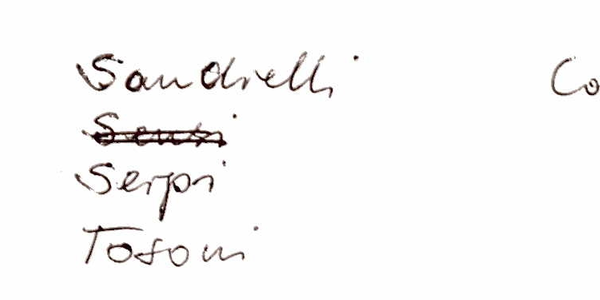 Sandrelli Co
Serpi
Tosoni